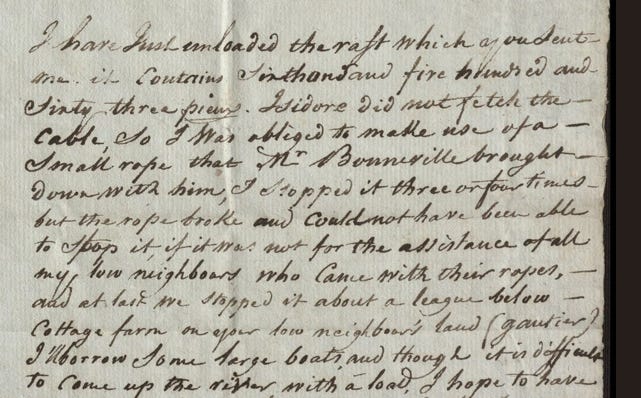 I have Just unloaded the raft which you Sent
me. it Contains Sixthousand five hundred and
Sixty three pieux. Isidore did not fetch the –
Cable, So I was obliged to make use of a –
Small rope that Mr Bonneville brought –
down with him, I Stopped it three or four times –
but the rope broke and Could not have been able
to Stop it, if it was not for the assistance of all
my low neighbours who Came with their ropes, –
and at last we Stopped it about a league below –
Cottage farm on your low neighbour's land (gautier)
I'll borrow Some large boats, and though it is difficult
to Come up the river with a load, I hope to have